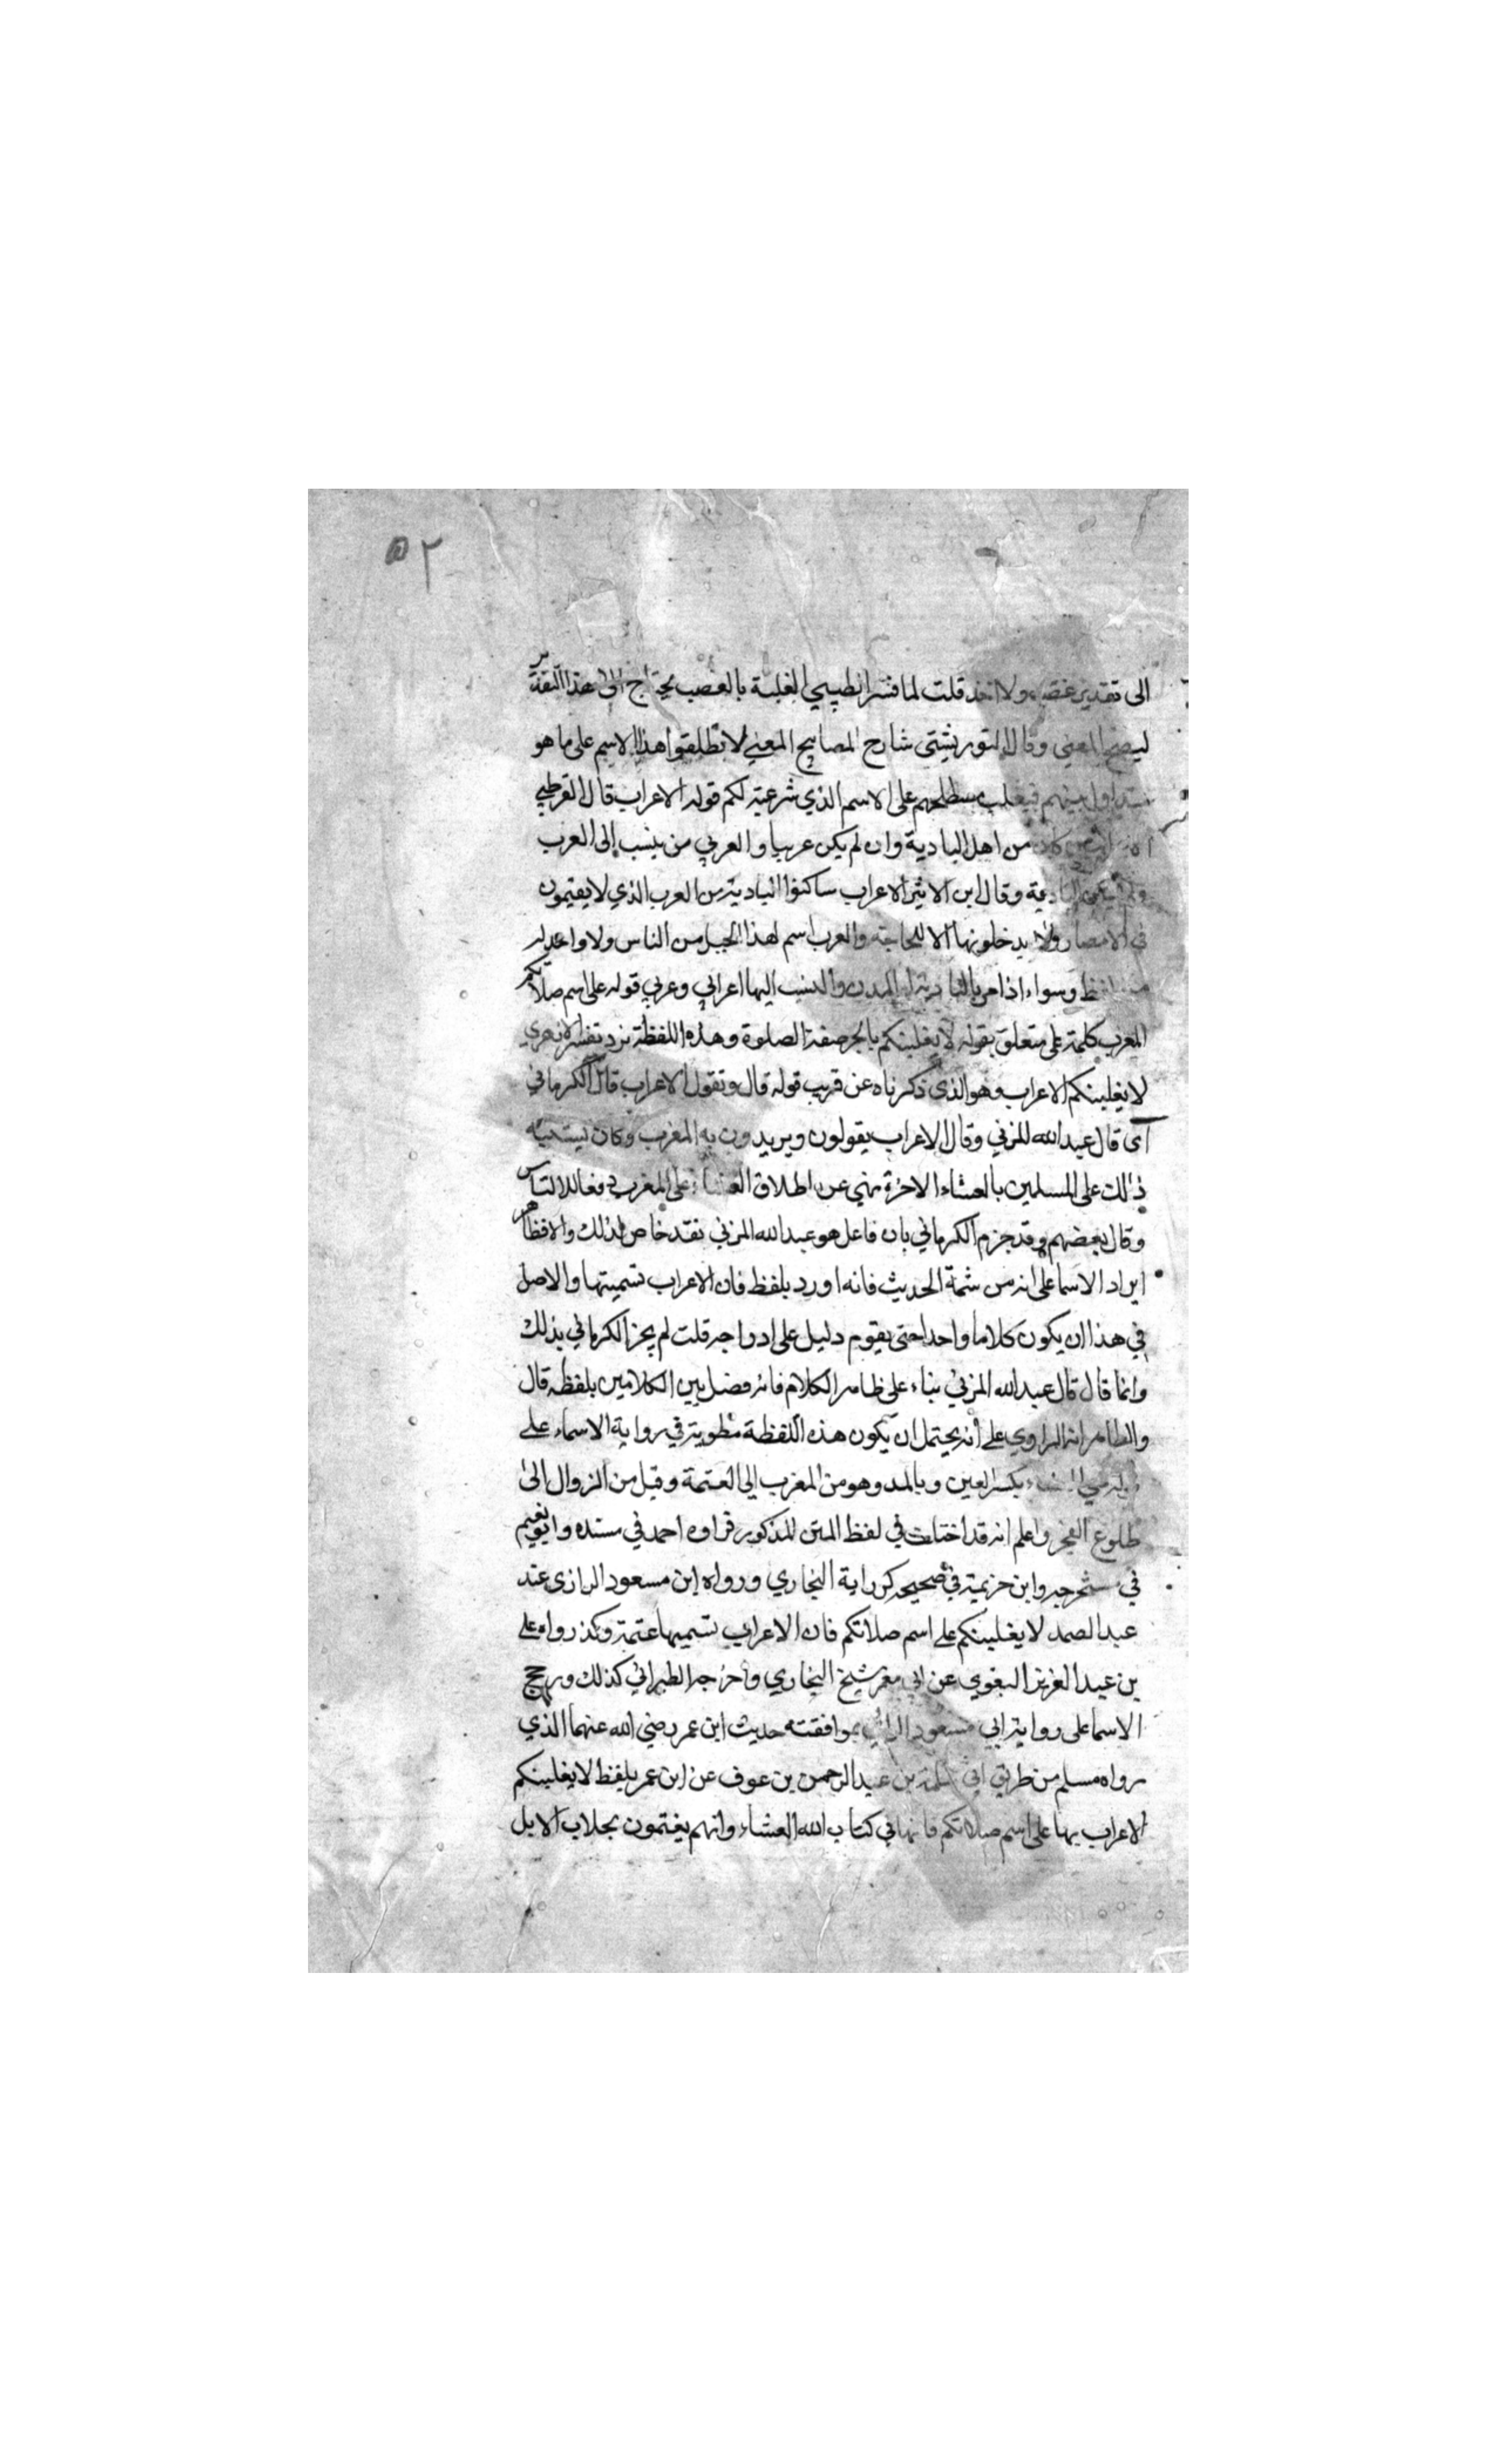 ٥٢
الى تقدير غصب ولا اخذ قلت لما فسر الطيبي الغلبة بالغصب يحتاج الى هذا التقدير
ليصح المعنى وقال التوربشتي شارح المصابيح المعني لا تطلقوا هذا الاسم على ما هو
متداول بينهم فيغلب مصطلحهم على الاسم الذي شرعته لكم قوله الاعراب قال القرطبي
كان من اهل البادية وان لم يكن عربيا والعربي من ينسب الى العرب
ولم يكن البادية وقال ابن الاثير الاعراب ساكنوا البادية من العرب الذي لا يقيمون
في الامصار ولا يدخلونها الا للحاجة والعرب اسم لهذا الجيل من الناس ولا واحد له
لفظ وسواء اذا من بالبادية او المدن والنسب اليها اعرابي وعربي قوله على اسم صلاتكم
المغرب كلمة على متعلق بقوله لا يغلبنكم بالجر صفة الصلوة وهذه اللفظة ترد تفسير الازهري
لا يغلبنكم الاعراب وهو الذي ذكرناه عن قريب قوله قال وتقول الاعراب قال الكرماني
اى قال عبد الله المزني وقال الاعراب يقولون ويريدون به المغرب وكان يستحيه
ذالك على المسلمين بالعشاء الاخرة نهي عن اطلاق العشاء على المغرب دفعا للالتباس
وقال بعضهم وقد جزم الكرماني بان فاعل هو عبد الله المزني نقد خاص لذلك والا فظاهر
ايراد الاسماعلى انه من تتمة الحديث فانه اورد بلفظ فان الاعراب تسميتها والاصل
في هذا ان يكون كلاما واحدا حتى يقوم دليل على ادراجه قلت لم يجز الكرماني بذلك
وانما قال قال عبد الله المزني بناء على ظاهر الكلام فانه فصل بين الكلامين بلفظه قال
والظاهر انه الراوي على أنه يحتمل ان يكون هذه اللفظة مطوية في رواية الاسماء على
بكسر العين وبالمد وهو من المغرب الى العتمة وقيل من الزوال الى
طلوع الفجر واعلم انه قد اختلف في لفظ المتن المذكور فرواه احمد في مسنده وابو نعيم
في مستخرجه وابن خزيمة في صحيحه كرراية البخاري ورواه ابن مسعود الرازى عند
عبد الصمد لا يغلبنكم على اسم صلاتكم فان الاعراب تسميها عتمة وكذ رواه على
بن عبد العزيز البغوي عن ابي معمر شيخ البخاري واخرجه الطبراني كذلك ورجح
الاسماعلى رواية ابي مسعود الرازي بموافقته حديث ابن عمر رضي الله عنهما الذي
رواه مسلم من طريق ابي سلمة بن عبد الرحمن بن عوف عن ابن عمر بلفظ لا يغلبنكم
الاعراب بها على اسم صلاتكم فانها في كتاب الله العشاء وانهم يغتمون بجلاب الابل